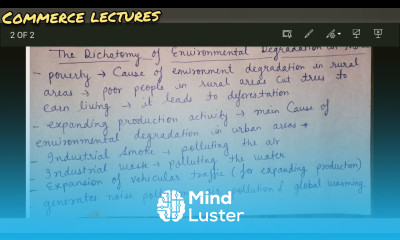 COMMERCE LECTURES
2 OF 2
The Dichotomy of Environmental Degradation in
- poverty → Cause of environment degradation in rural
areas → poor people in rural areas cut trees to
earn living → it leads to deforestation
- expanding production activity → main Cause of
environmental degradation in urban areas →
- Industrial smoke → polluting the air
- Industrial waste → polluting the water
- Expansion of vehicular traffic (for expanding production)
generates noise pollution & global warming.
Mind
Luster